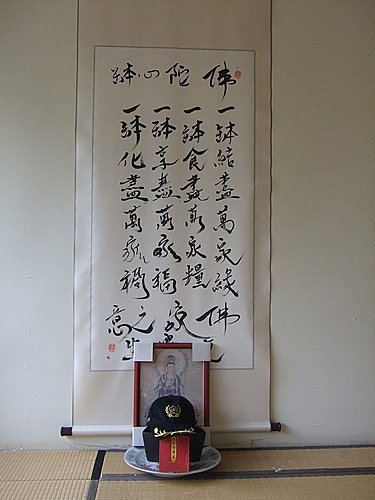 佛陀心缽
一缽結盡萬家緣
一缽食盡萬家糧
一缽享盡萬家福
一缽化盡萬家禍
佛
之
意